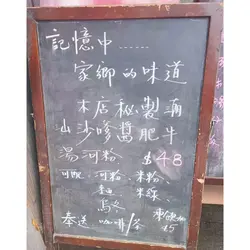 記憶中......
家鄉的味道
本店秘製涌
山沙嗲醬肥牛
湯河粉 $48
可配:河粉、米粉、
麵、米線、
烏冬
奉送咖啡/茶 凍飲加
$5